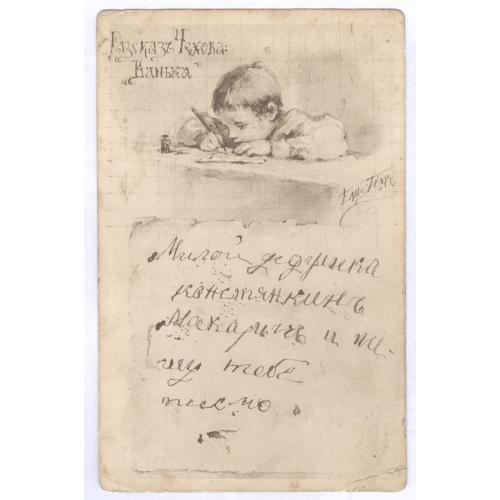 Разсказъ Чехова:
"Ванька"
Елис. Бёмъ
Милой дедушка
канстянкинъ
Макарычъ и пи-
шу тебе
писмо.